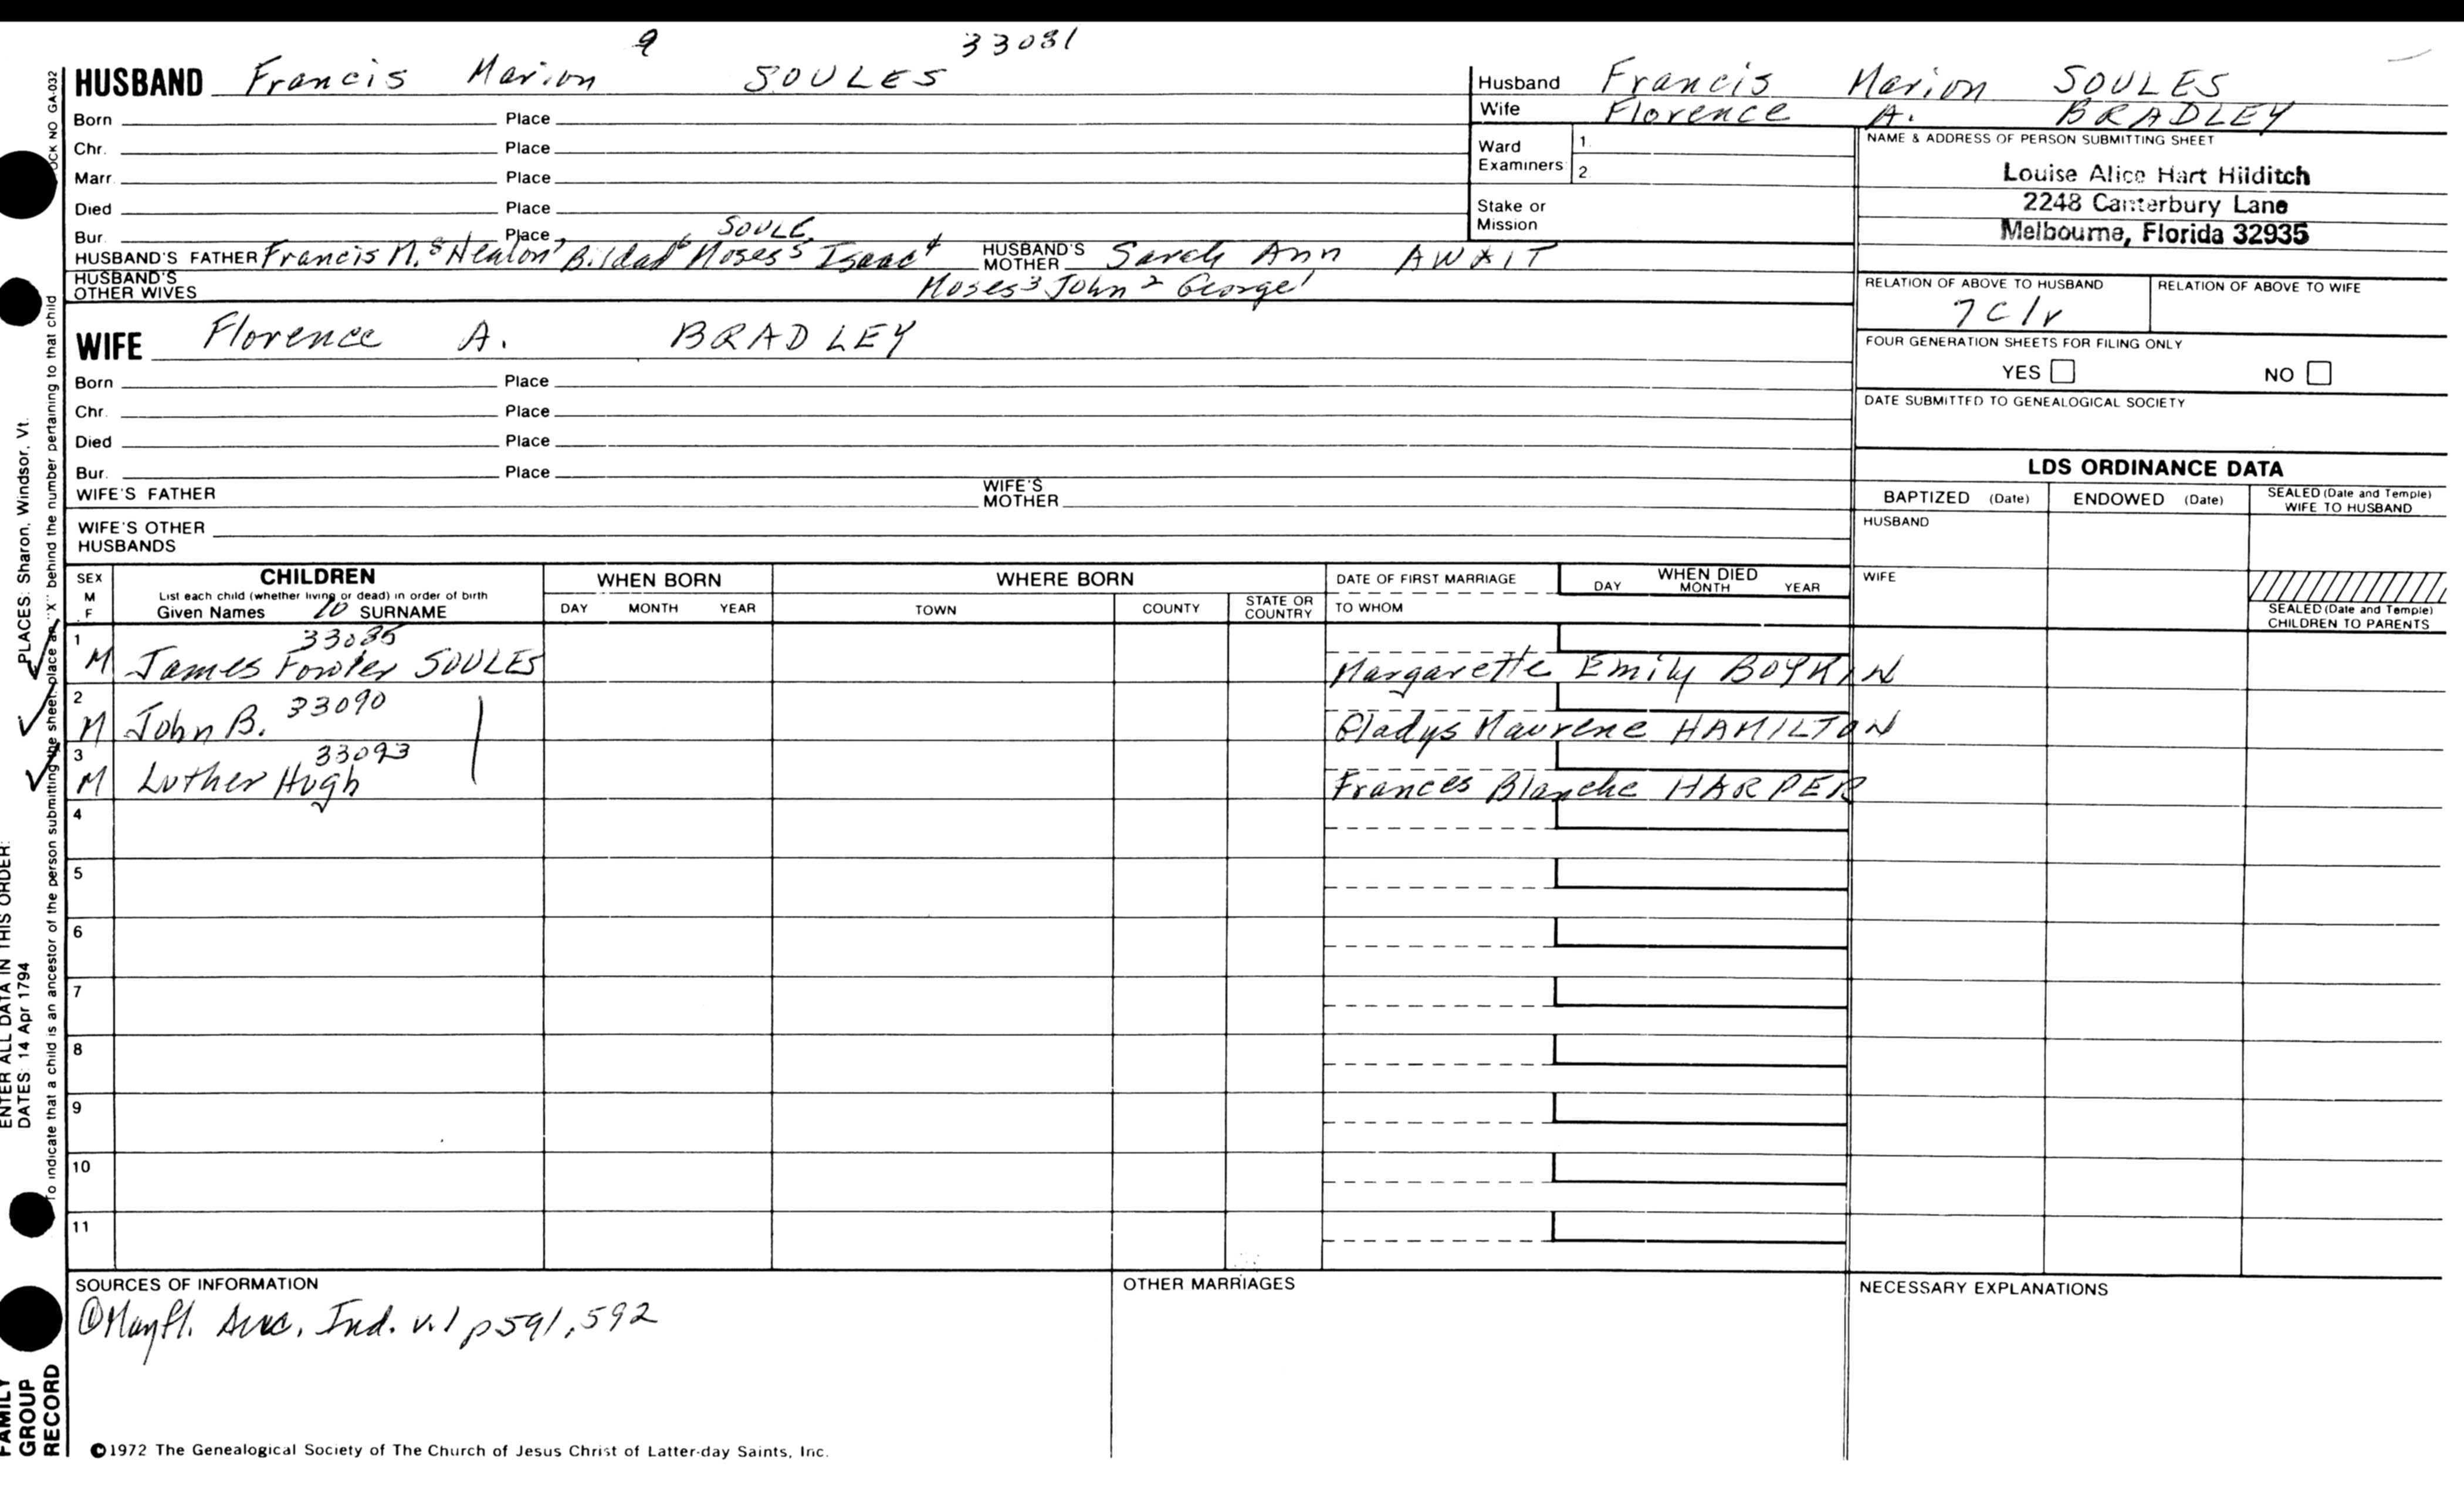 9 33081
HUSBAND Francis Marion SOULES
Born Place
Chr. Place
Marr. Place
Died Place
Bur. Place SOULE
HUSBAND'S FATHER Francis M.8 Nealon7 Bildad6 Moses5 Isaac4 HUSBAND'S MOTHER Sarah Ann AWAIT
HUSBAND'S OTHER WIVES Moses3 John2 George1
WIFE Florence A. BRADLEY
Born Place
Chr. Place
Died Place
Bur. Place
WIFE'S FATHER WIFE'S MOTHER
WIFE'S OTHER HUSBANDS
Husband Francis Marion SOULES
Wife Florence A. BRADLEY
Ward Examiners 1.
2
Stake or Mission
NAME & ADDRESS OF PERSON SUBMITTING SHEET
Louise Alice Hart Hilditch
2248 Canterbury Lane
Melbourne, Florida 32935
RELATION OF ABOVE TO HUSBAND RELATION OF ABOVE TO WIFE
7C1r
FOUR GENERATION SHEETS FOR FILING ONLY
YES NO
DATE SUBMITTED TO GENEALOGICAL SOCIETY
LDS ORDINANCE DATA
BAPTIZED (Date) ENDOWED (Date) SEALED (Date and Temple) WIFE TO HUSBAND
HUSBAND
WIFE
SEALED (Date and Temple)
CHILDREN TO PARENTS
SEX M F CHILDREN WHEN BORN WHERE BORN DATE OF FIRST MARRIAGE WHEN DIED
List each child (whether living or dead) in order of birth
Given Names 10 SURNAME DAY MONTH YEAR TOWN COUNTY STATE OR COUNTRY TO WHOM DAY MONTH YEAR
1 33085
M James Fowler SOULES Margarette Emily BOYKIN
2 33090
M John B. Gladys Maurene HAMILTON
3 33093
M Luther Hugh Frances Blanche HARPER
4
5
6
7
8
9
10
11
SOURCES OF INFORMATION OTHER MARRIAGES NECESSARY EXPLANATIONS
①Mayfl. Ind. v.1 p591,592
©1972 The Genealogical Society of The Church of Jesus Christ of Latter-day Saints, Inc.
FAMILY GROUP RECORD
ENTER ALL DATA IN THIS ORDER:
DATES: 14 Apr 1794
PLACES: Sharon, Windsor, Vt.
To indicate that a child is an ancestor of the person submitting the sheet, place an "X" behind the number pertaining to that child
OCK NO GA-032